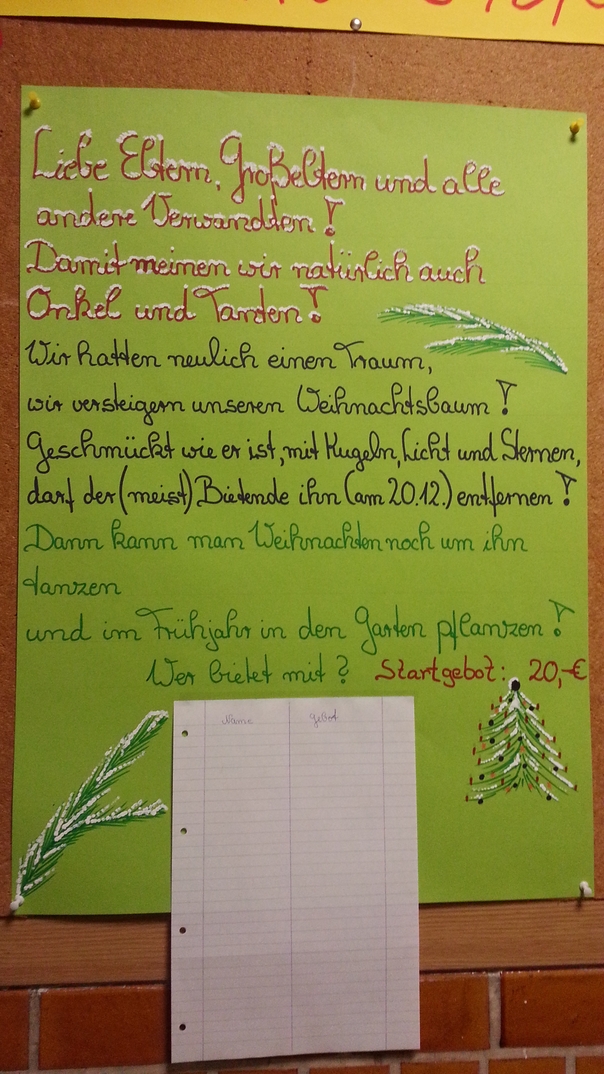 Liebe Eltern, Großeltern und alle
andere Verwandten!
Damit meinen wir natürlich auch
Onkel und Tanten!
Wir hatten neulich einen Traum,
wir versteigern unseren Weihnachtsbaum!
Geschmückt wie er ist, mit Kugeln, Licht und Sternen,
darf der (meist) Bietende ihn (am 20.12.) entfernen!
Dann kann man Weihnachten noch um ihn
tanzen
und im Frühjahr in den Garten pflanzen!
Wer bietet mit? Startgebot: 20,-€
Name Gebot